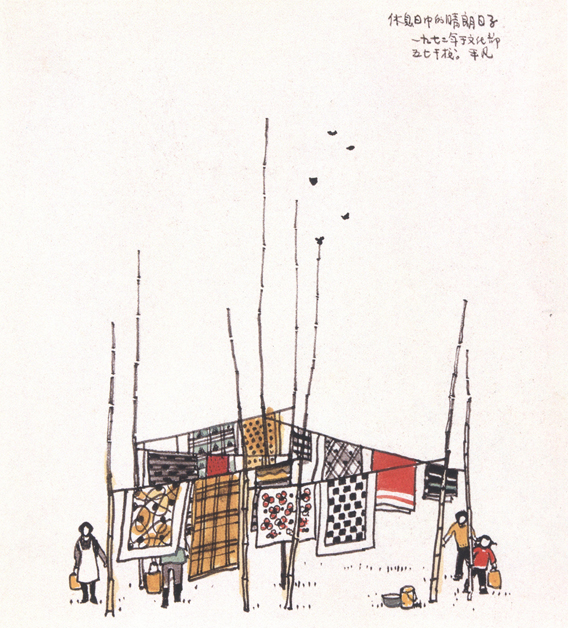 休息日中的晴朗日子
一九七二年于文化部
五七干校。平凡